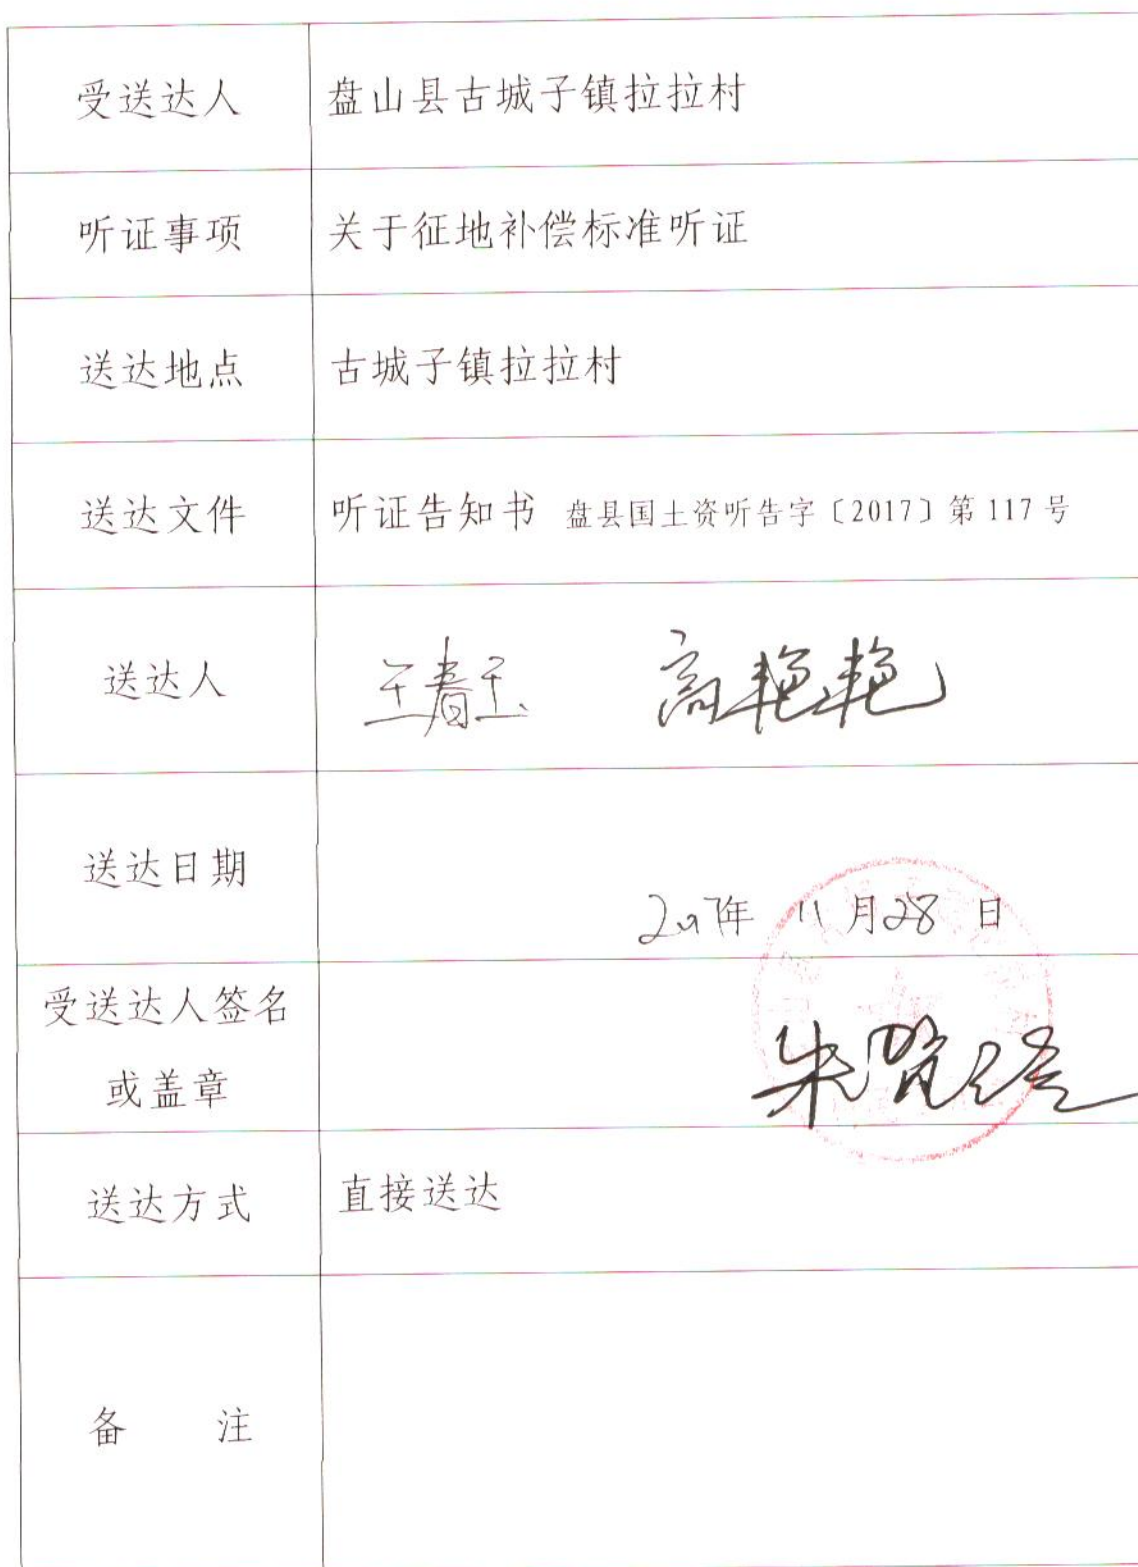 受送达人 盘山县古城子镇拉拉村
听证事项 关于征地补偿标准听证
送达地点 古城子镇拉拉村
送达文件 听证告知书 盘县国土资听告字〔2017〕第117号
送达人 王春玉 高艳艳
送达日期
2017年 11月28日
受送达人签名
或盖章
朱
送达方式 直接送达
备 注